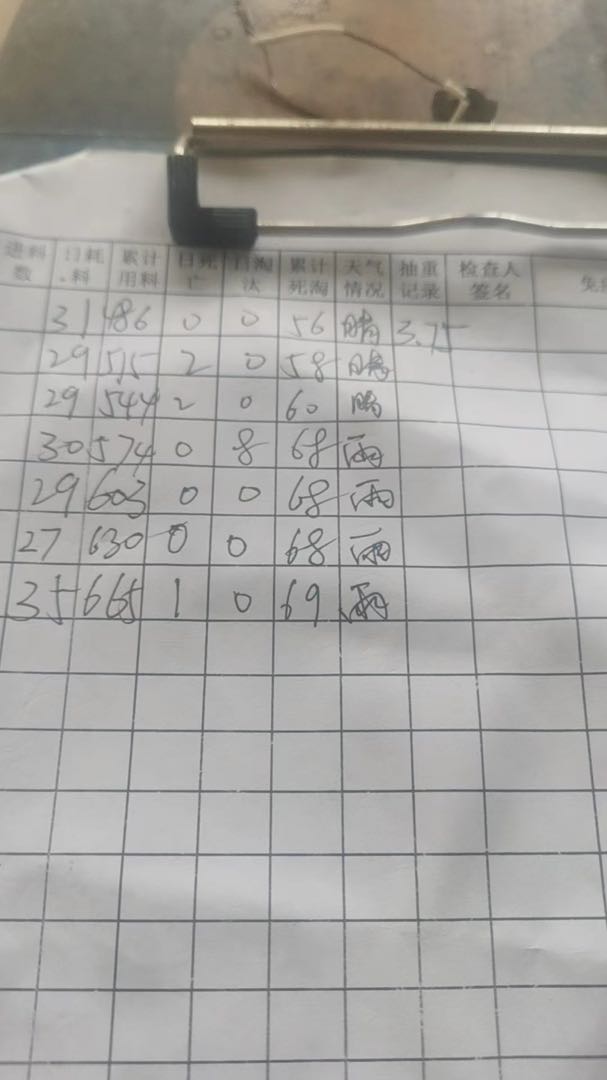 进料数 日耗料 累计用料 日死亡 日淘汰 累计死淘 天气情况 抽重记录 检查人签名 免
31 486 0 0 56 晴 3.75
29 515 2 0 58 晴
29 544 2 0 60 晴
30 574 0 8 68 雨
29 603 0 0 68 雨
27 630 0 0 68 雨
35 665 1 0 69 雨